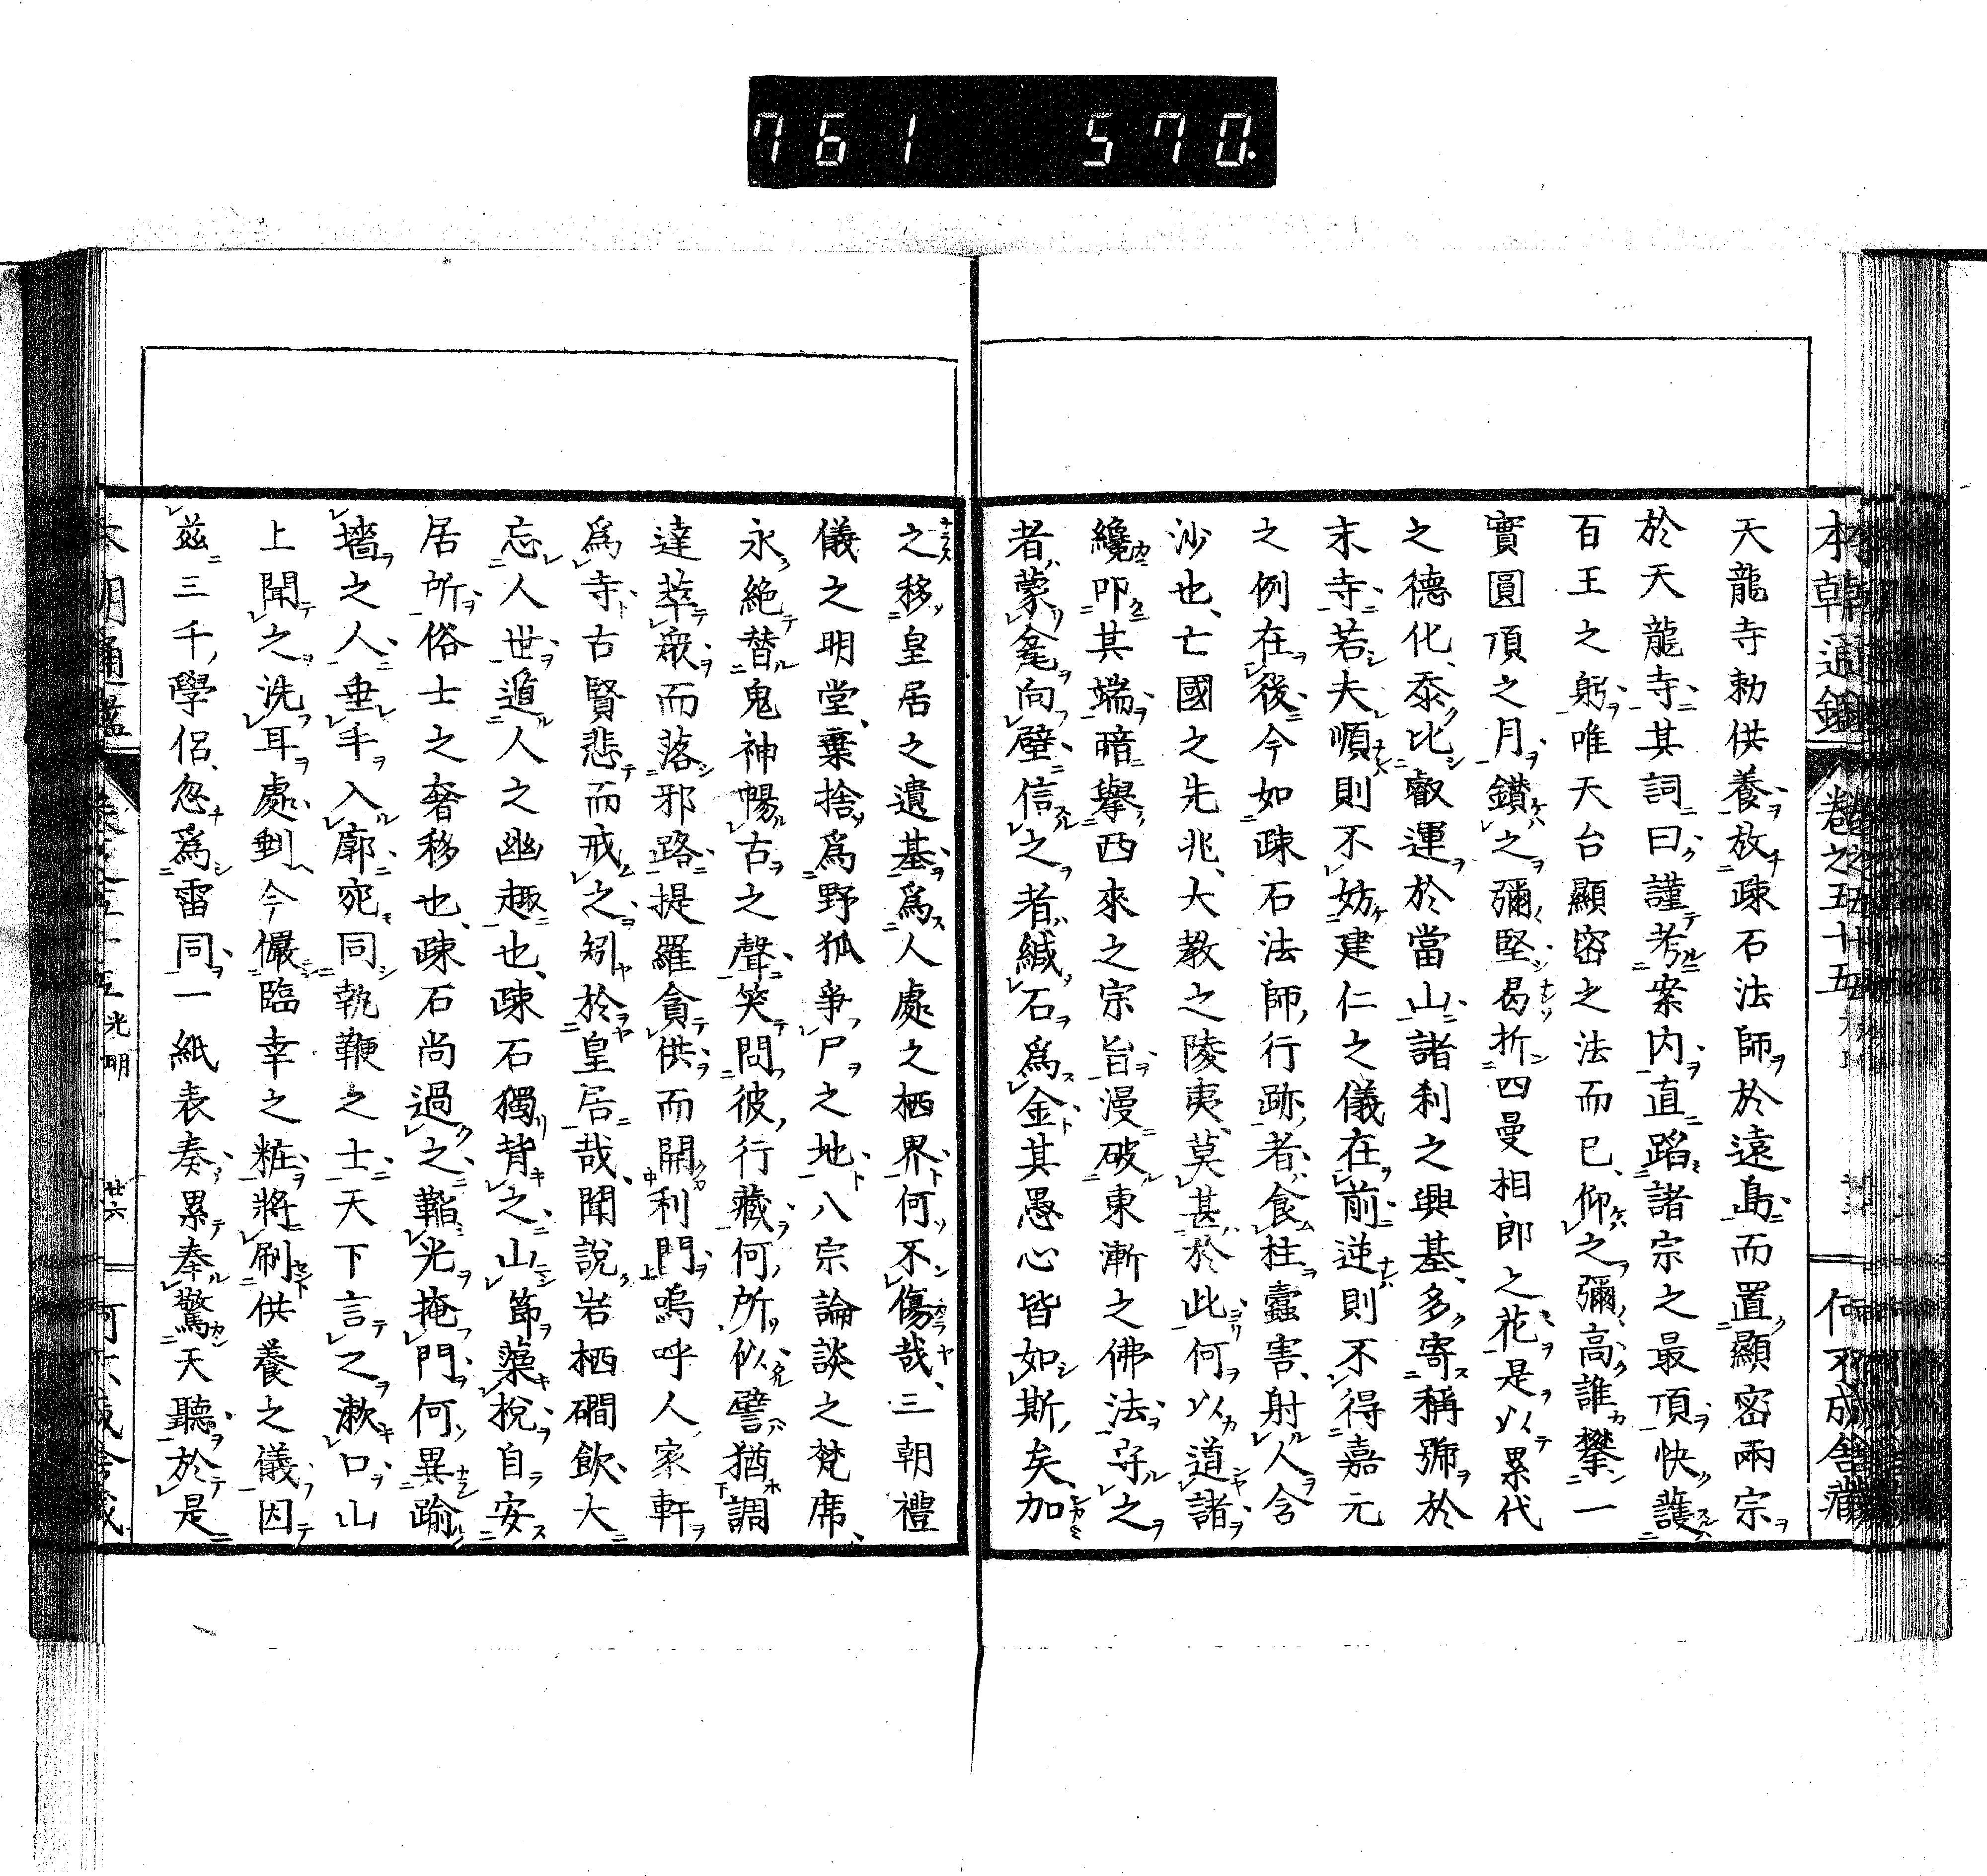 761 570.
天龍寺勅供養放疎石法師於遠島而置顯密兩宗
於天龍寺其詞曰謹考案内直蹈諸宗之最頂快護
百王之躬唯天台顯密之法而已仰之彌高誰攀一
實圓頂之月鑚之彌堅曷折四曼相郎之花是以累代
之德化忝比叡運於當山諸刹之興基多寄稱號於
末寺若夫順則不妨建仁之儀在前逆則不得嘉元
之例在後今如疎石法師行跡者食柱蠧害射人含
沙也亡國之先兆大教之陵夷莫甚於此何以道諸
纔叩其端暗擧西來之宗旨漫破東漸之佛法守之
者蒙龛向壁信之者緘石爲金其愚心皆如斯矣加
之移皇居之遺基爲人處之栖界何不傷哉三朝禮
儀之明堂棄捨爲野狐爭尸之地八宗論談之梵席
永絶替鬼神暢古之聲笑問彼行藏何所似譬猶調
達萃衆而落邪路提羅貪供而開利門嗚呼人家軒
爲寺古賢悲而戒之矧於皇居哉聞說岩栖磵飲大
忘人世遁人之幽趣也疎石獨背之山節藻梲自安
居所俗士之奢移也疎石尚過之韜光掩門何異踰
墻之人垂手入廓宛同執鞭之士天下言之漱口山
上聞之洗耳處剴今儼臨幸之粧將刷供養之儀因
茲三千學侶忽爲雷同一紙表奏累奉驚天聽於是